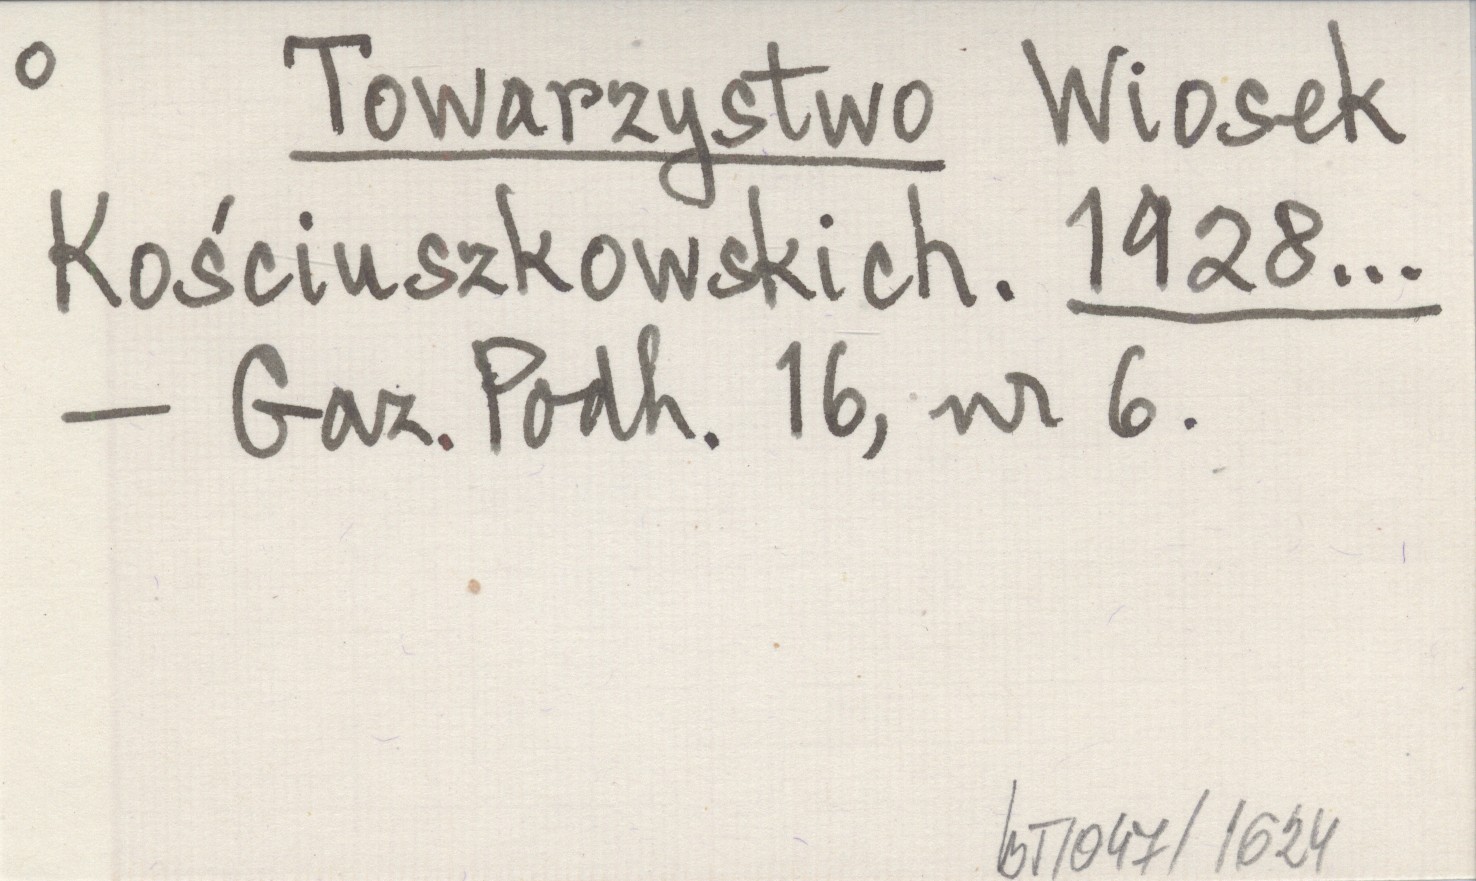 o Towarzystwo Wiosek
Kościuszkowskich. 1928...
— Gaz. Podh. 16, nr 6.
BT/047/1624